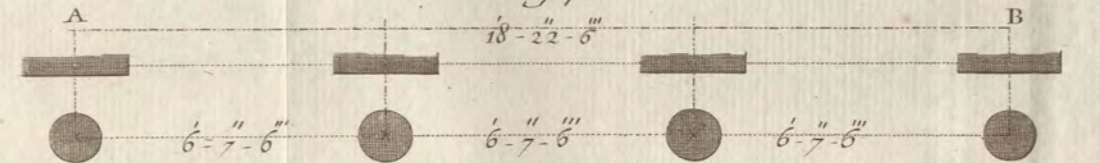 A B
18'-22"-6'''
6'-7"-6''' 6'-7"-6''' 6'-7"-6'''